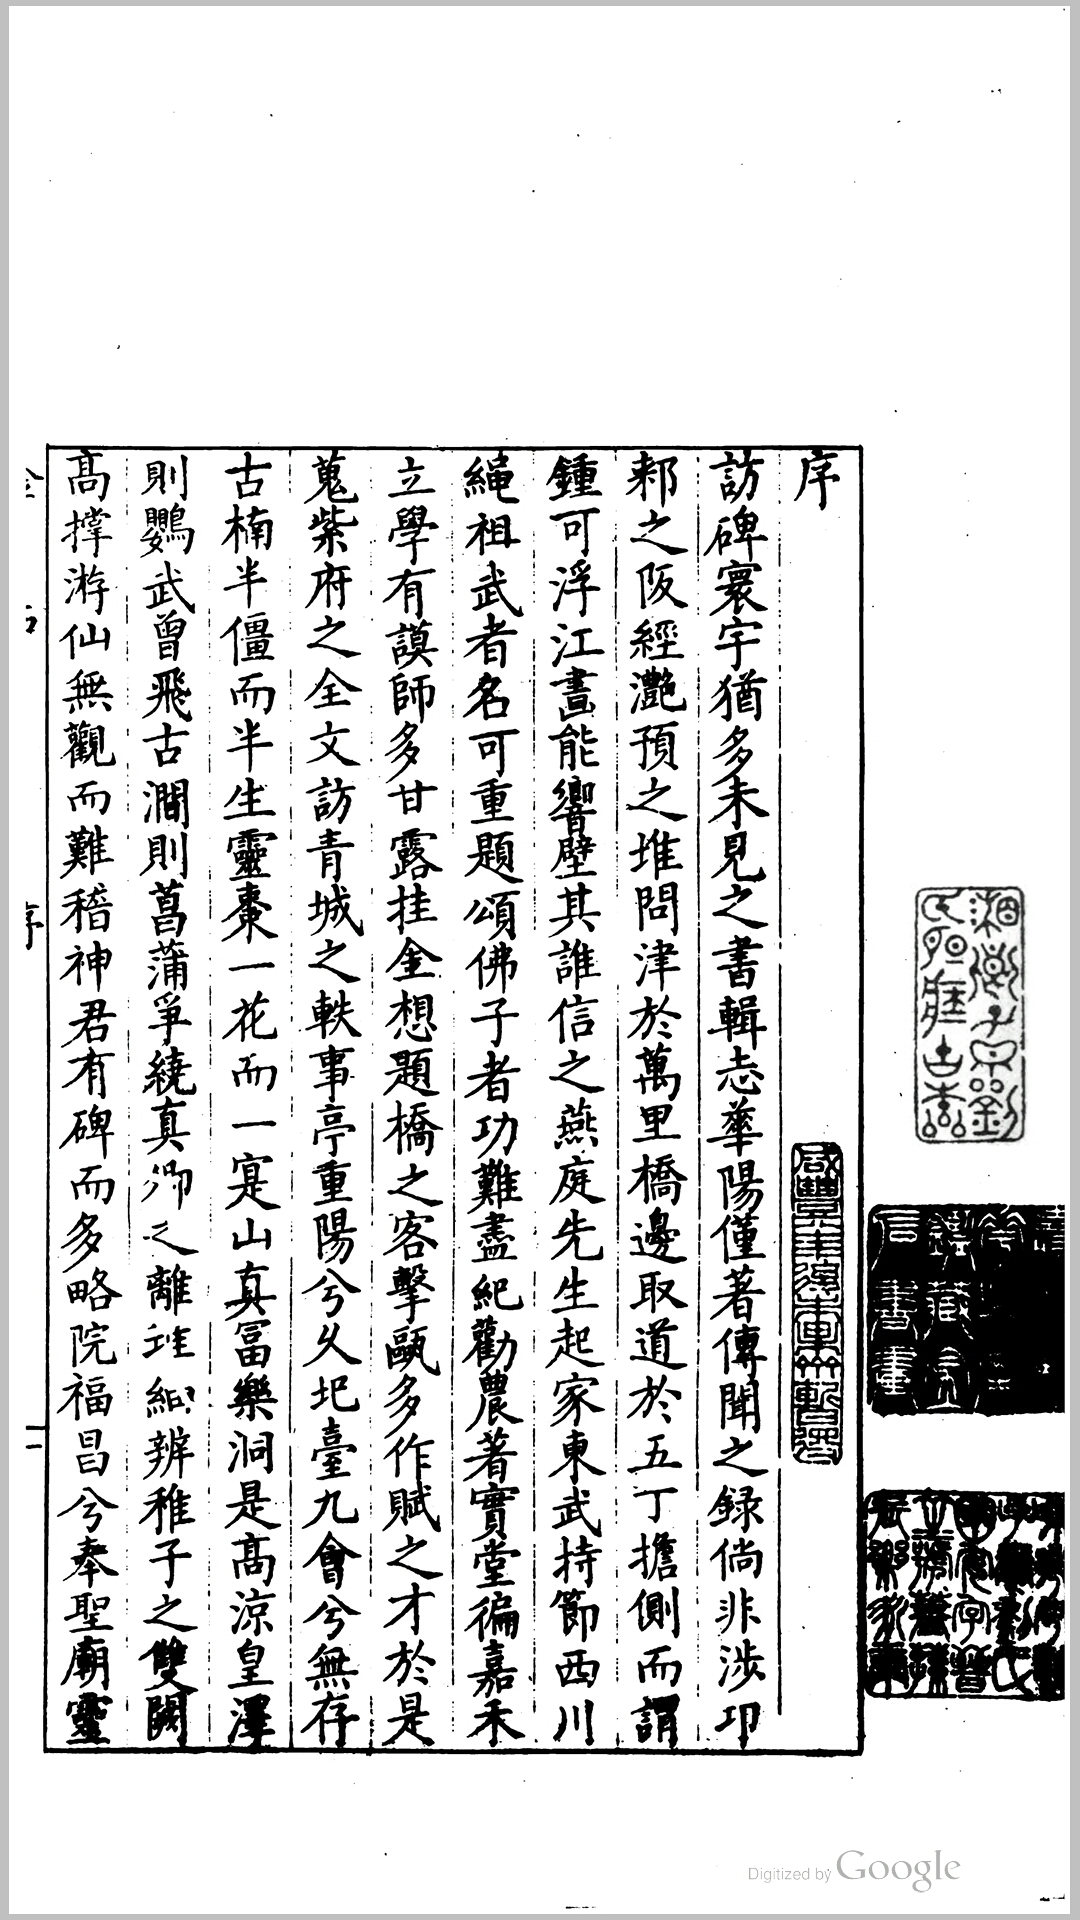 序
訪碑寰宇猶多未見之書輯志華陽僅著傳聞之録倘非涉卭
郲之阪經灔預之堆問津於萬里橋邊取道於五丁擔側而謂
鍾可浮江畫能響壁其誰信之燕庭先生起家東武持節西川
繩祖武者名可重題頌佛子者功難盡紀勸農著實堂徧嘉禾
立學有謨師多甘露挂金想題橋之客擊甌多作賦之才於是
蒐紫府之全文訪青城之軼事亭重陽兮乆圮臺九會兮無存
古楠半僵而半生靈棗一花而一寔山真冨樂洞是髙涼皇澤
則鸚武曾飛古澗則菖蒲爭繞真卿之離堆辨稚子之雙闕
髙撑游仙無觀而難稽神君有碑而多略院福昌兮奉聖廟靈
序
二
Digitized by Google